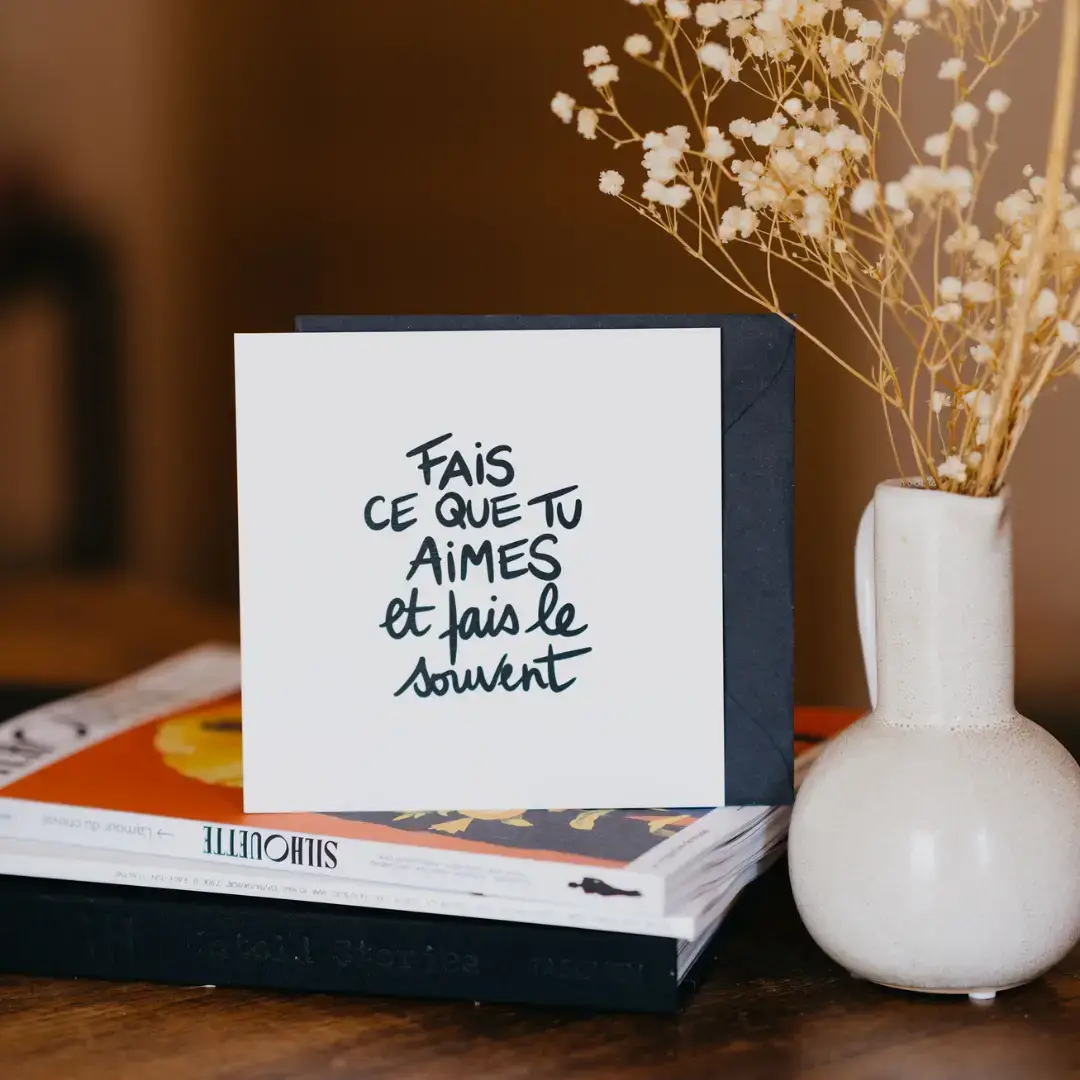 FAiS
CE QUE TU
AiMES
et fais le
souvent
L'amour du cheval →
SILHOUETTE
Untold Stories TASCHEN